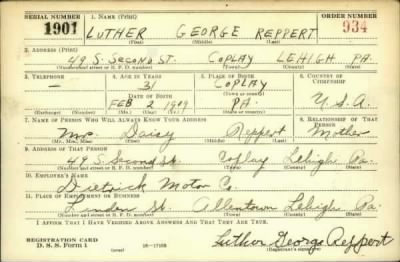 SERIAL NUMBER 1. NAME (Print) ORDER NUMBER
1901 LUTHER GEORGE REPPERT 934
(First) (Middle) (Last)
2. ADDRESS (Print)
49 S. SECOND ST. COPLAY LEHIGH PA.
(Number and street or R. F. D. number) (Town) (County) (State)
3. TELEPHONE 4. AGE IN YEARS 5. PLACE OF BIRTH 6. COUNTRY OF CITIZENSHIP
— 31 COPLAY
DATE OF BIRTH
FEB 2 1909 PA. U.S.A.
(Mo.) (Day) (Yr.)
7. NAME OF PERSON WHO WILL ALWAYS KNOW YOUR ADDRESS 8. RELATIONSHIP OF THAT PERSON
Mrs. Daisy Reppert Mother
(Mr., Mrs., Miss) (First) (Middle) (Last)
9. ADDRESS OF THAT PERSON
49 S. Second St. Coplay Lehigh Pa.
(Number and street or R. F. D. number) (Town) (County) (State)
10. EMPLOYER'S NAME
Dietrick Motor Co.
11. PLACE OF EMPLOYMENT OR BUSINESS
Linden St. Allentown Lehigh Pa.
(Number and street or R. F. D. number) (Town) (County) (State)
I AFFIRM THAT I HAVE VERIFIED ABOVE ANSWERS AND THAT THEY ARE TRUE.
REGISTRATION CARD
D. S. S. Form 1 (over) 16—17105 Luther George Reppert
(Registrant's signature)